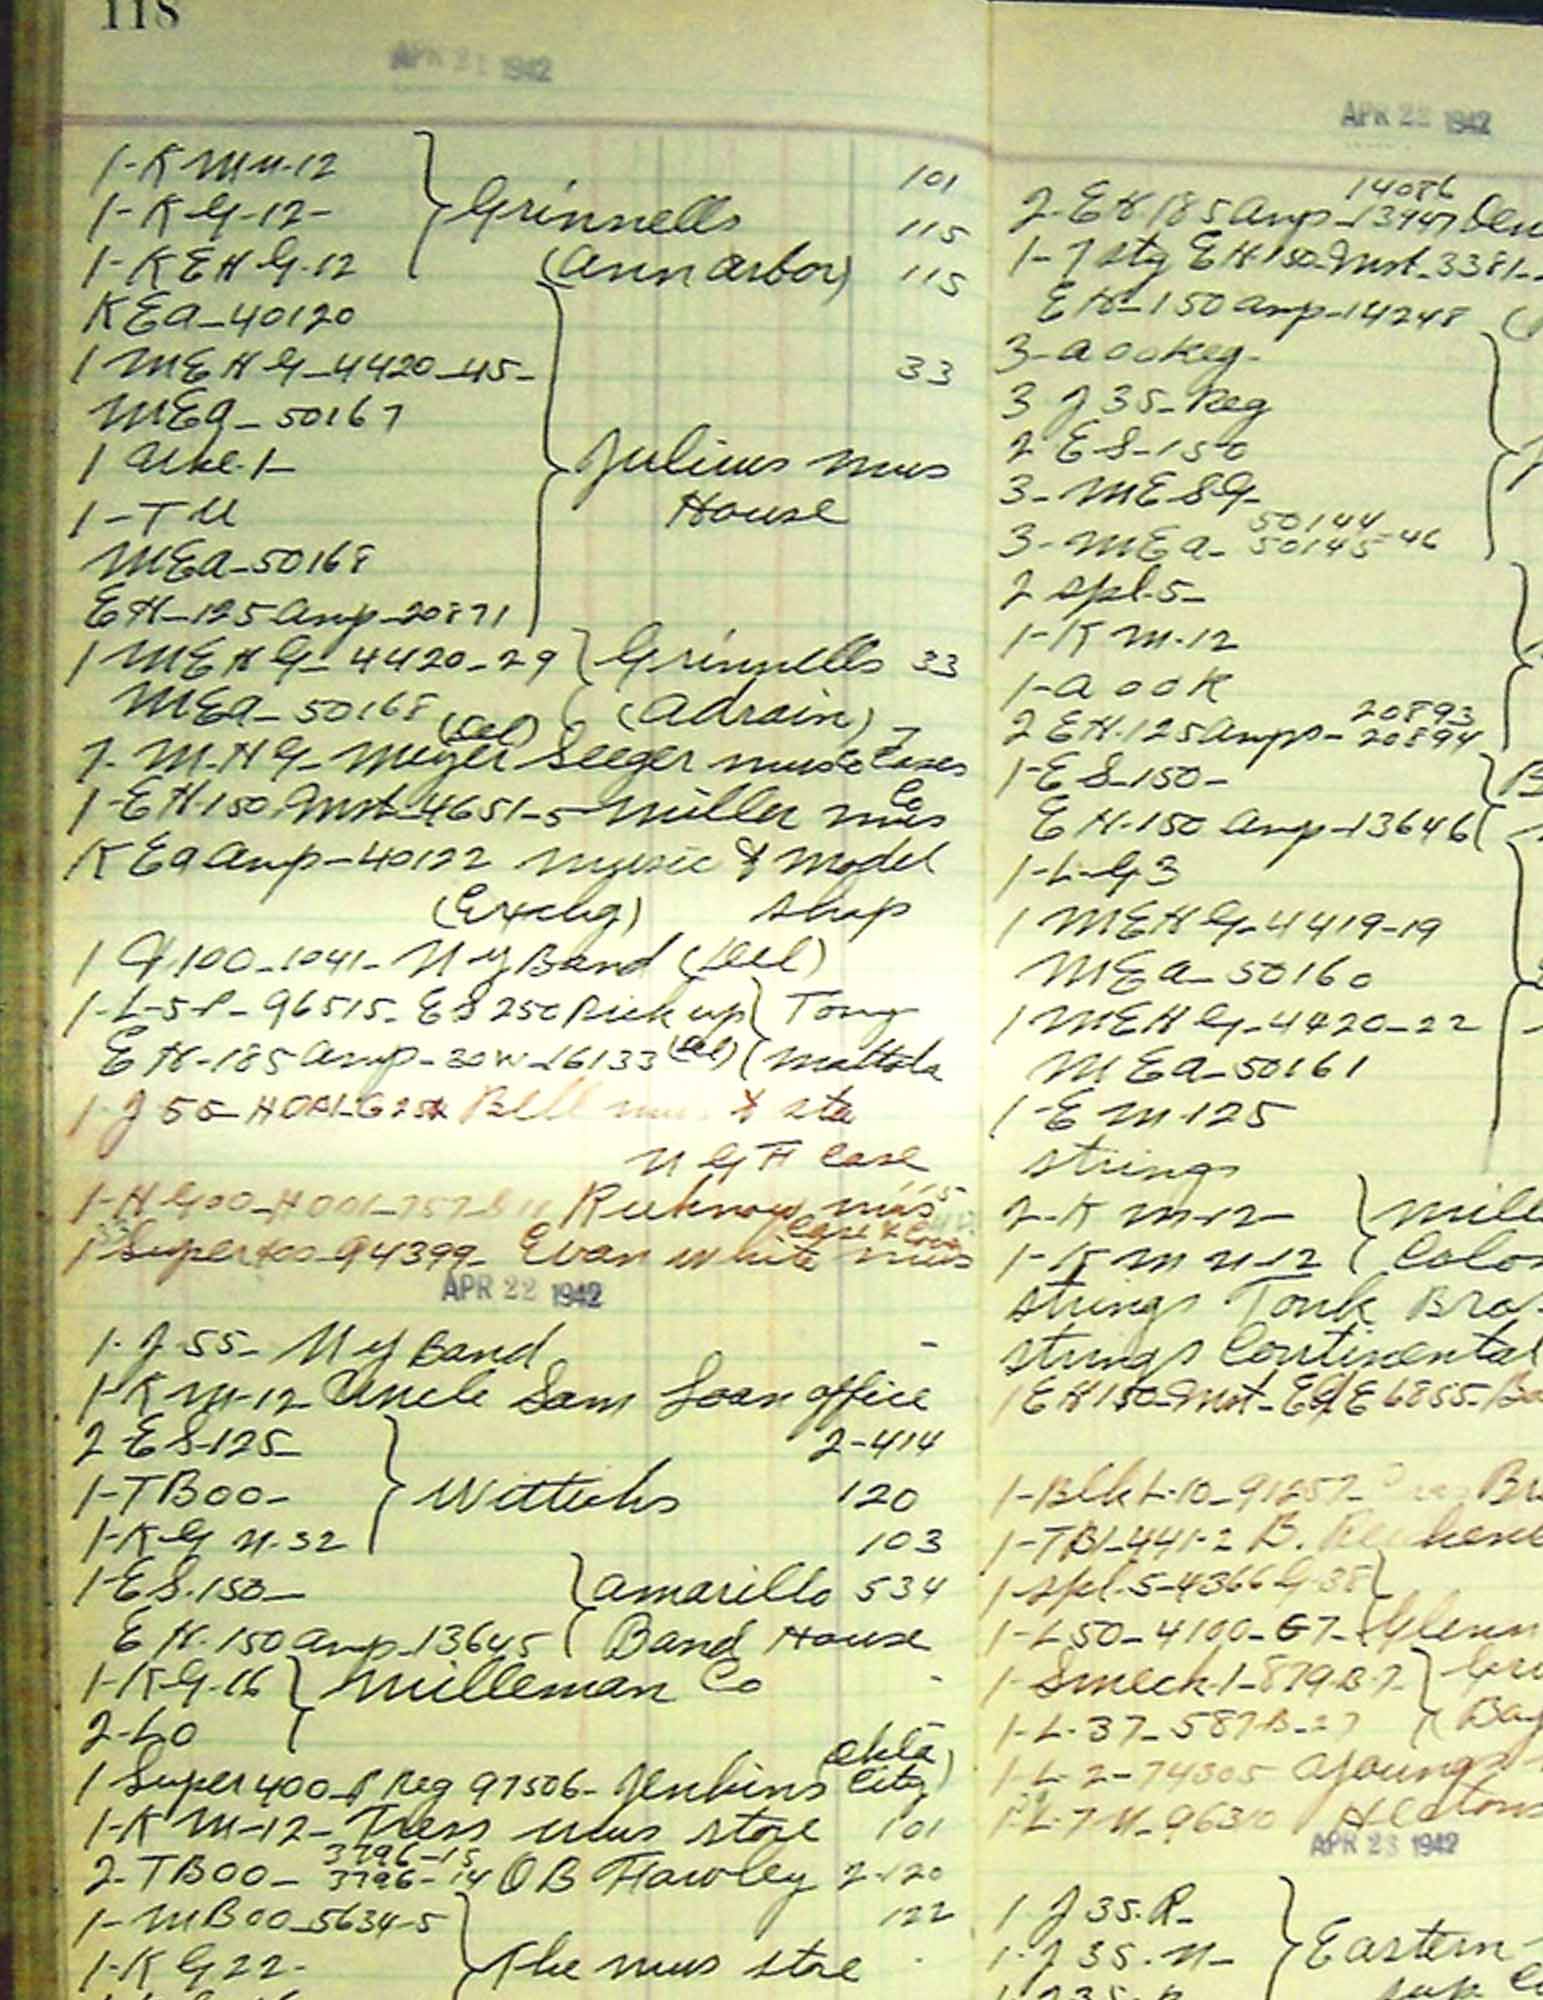 118
APR 21 1942
1-KMU-12 101
1-KG-12- Grinnells 115
1-KEHG-12 (Ann Arbor) 115
KEA-40120
1 MEHG-4420-45- 33
MEA-50167
1 Uke-1- Julius Mus
1-TU House
MEA-50168
EH-125 Amp-20871
1 MEHG-4420-29 Grinnells 33
MEA-50168 (Adrain)
(Del)
7-MHG-Meyer Seeger Music Cases
Co
1-EH-150 Inst-4651-5-Miller Mus
KEA Amp-40122 Music & Model
(Exchg) Shop
1 G100-1041-NY Band (Del)
1-L-5P-96515-ES250 Pick up Tony
EH-185 Amp-30W-16133 (Del) Mottola
1-J55- Bell Mus & Sta
NGH Case
1-HG00- Mus
Case & Cover
1 Super 400-94399-Evan White Mus
APR 22 1942
1-J55-NY Band -
1-KM-12 Uncle Sam Loan Office
2-ES-125 2-414
1-TB00- Wittichs 120
1-KGN-32 103
1-ES-150- Amarillo 534
EH-150 Amp-13645 Band House
1-KG-16 Milleman Co -
2-L0
(Okla
1 Super 400-P Reg 97506-Jenkins City)
1-KM-12- Mus Store 101
3796-15
2-TB00-3796-14 OB Hawley 2-120
1-MB00-5634-5 122
1-KG22- The Mus Store
APR 22 1942
14086
2-EH-185 Amp-13947 Del
1-7 stg EH-150-Inst-3381-
EH-150 Amp-14248
3-A00 Reg-
3 J35-Reg
2 ES-150
3-MESG-
50144
3-MEA-50145-46
2 Spl-5-
1-KM-12
1-A00K
20893
2 EH-125 Amps-20894
1-ES-150-
EH-150 Amp-13646
1-LG3
1 MEHG-4419-19
MEA-50160
1 MEHG-4420-22
MEA-50161
1-EM-125
Strings
2-KM-12-
1-KMU-12
Strings-Tonk Bro
Strings Continental
1 EH150-Inst-
1-Blk L-10-91257-
1-TB1-441-2 B.
1 Spl-5-4366G-38
1-L50-4100-G7-Glenn
1-Smeck-1-879-B-7
1-L-37-587-B-27
1-L-2-74305
APR 23 1942
1 J35-R-
1-J35-N- Eastern